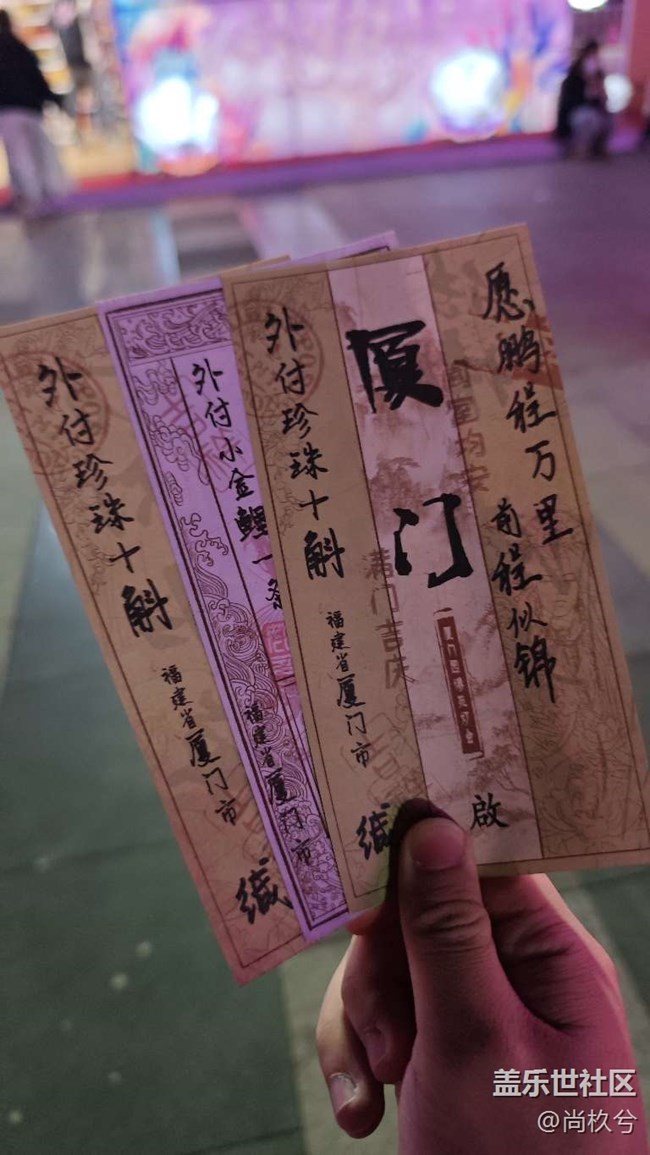 愿鹏程万里
前程似锦
厦门
啟
外付珍珠十斛
福建省厦门市
缄
外付小金鲤一条
福建省厦门市
外付珍珠十斛
福建省厦门市
缄
满门吉庆
盖乐世社区
@尚杦兮